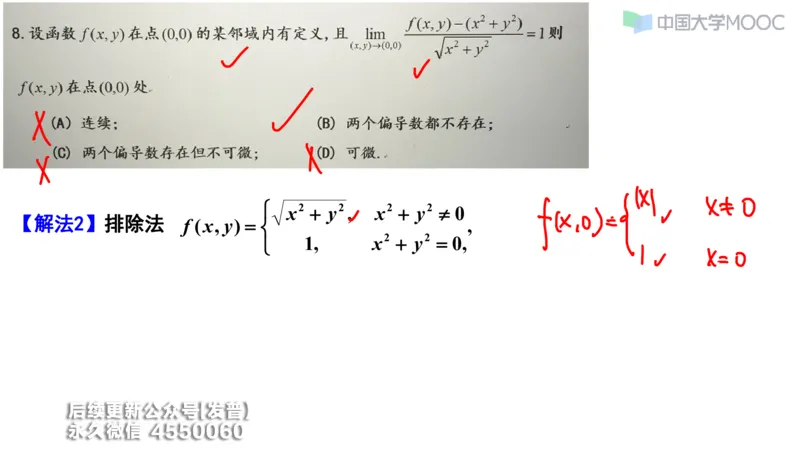 中国大学MOOC
8.设函数 f(x,y) 在点(0,0) 的某邻域内有定义,且 lim_{(x,y)→(0,0)} \frac{f(x,y)-(x²+y²)}{\sqrt{x²+y²}} = 1 则
f(x,y) 在点(0,0) 处
(A) 连续; (B) 两个偏导数都不存在;
(C) 两个偏导数存在但不可微; (D) 可微.
【解法2】排除法 f(x,y) = { \sqrt{x²+y²}, x²+y² ≠ 0
1, x²+y² = 0,
f(x,0) = { |x| x≠0
1 x=0
后续更新公众号[发普]
永久微信 4550060